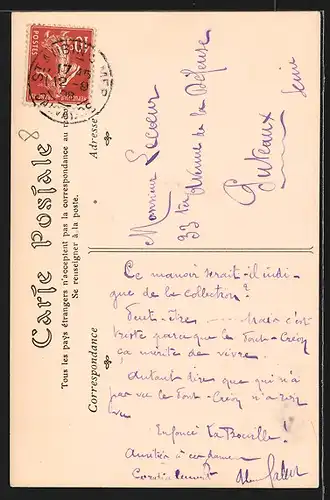 Carte Postale
Tous les pays étrangers n'acceptent pas la correspondance au
Se renseigner à la poste.
Correspondance
Adresse
POSTES
10
Monsieur Lecoeur
33 ter Avenue de la Défense
Puteaux
Seine
Ce manoir serait-il indi-
gne de la collection?
Peut-être ...... Mais c'est
triste parce que le Pont-
ça mérite de vivre.
Autant dire que qui n'a
pas vu le Pont- n'a rien
vu
Enfoncé La Bouille!
Amitiés
Cordialement